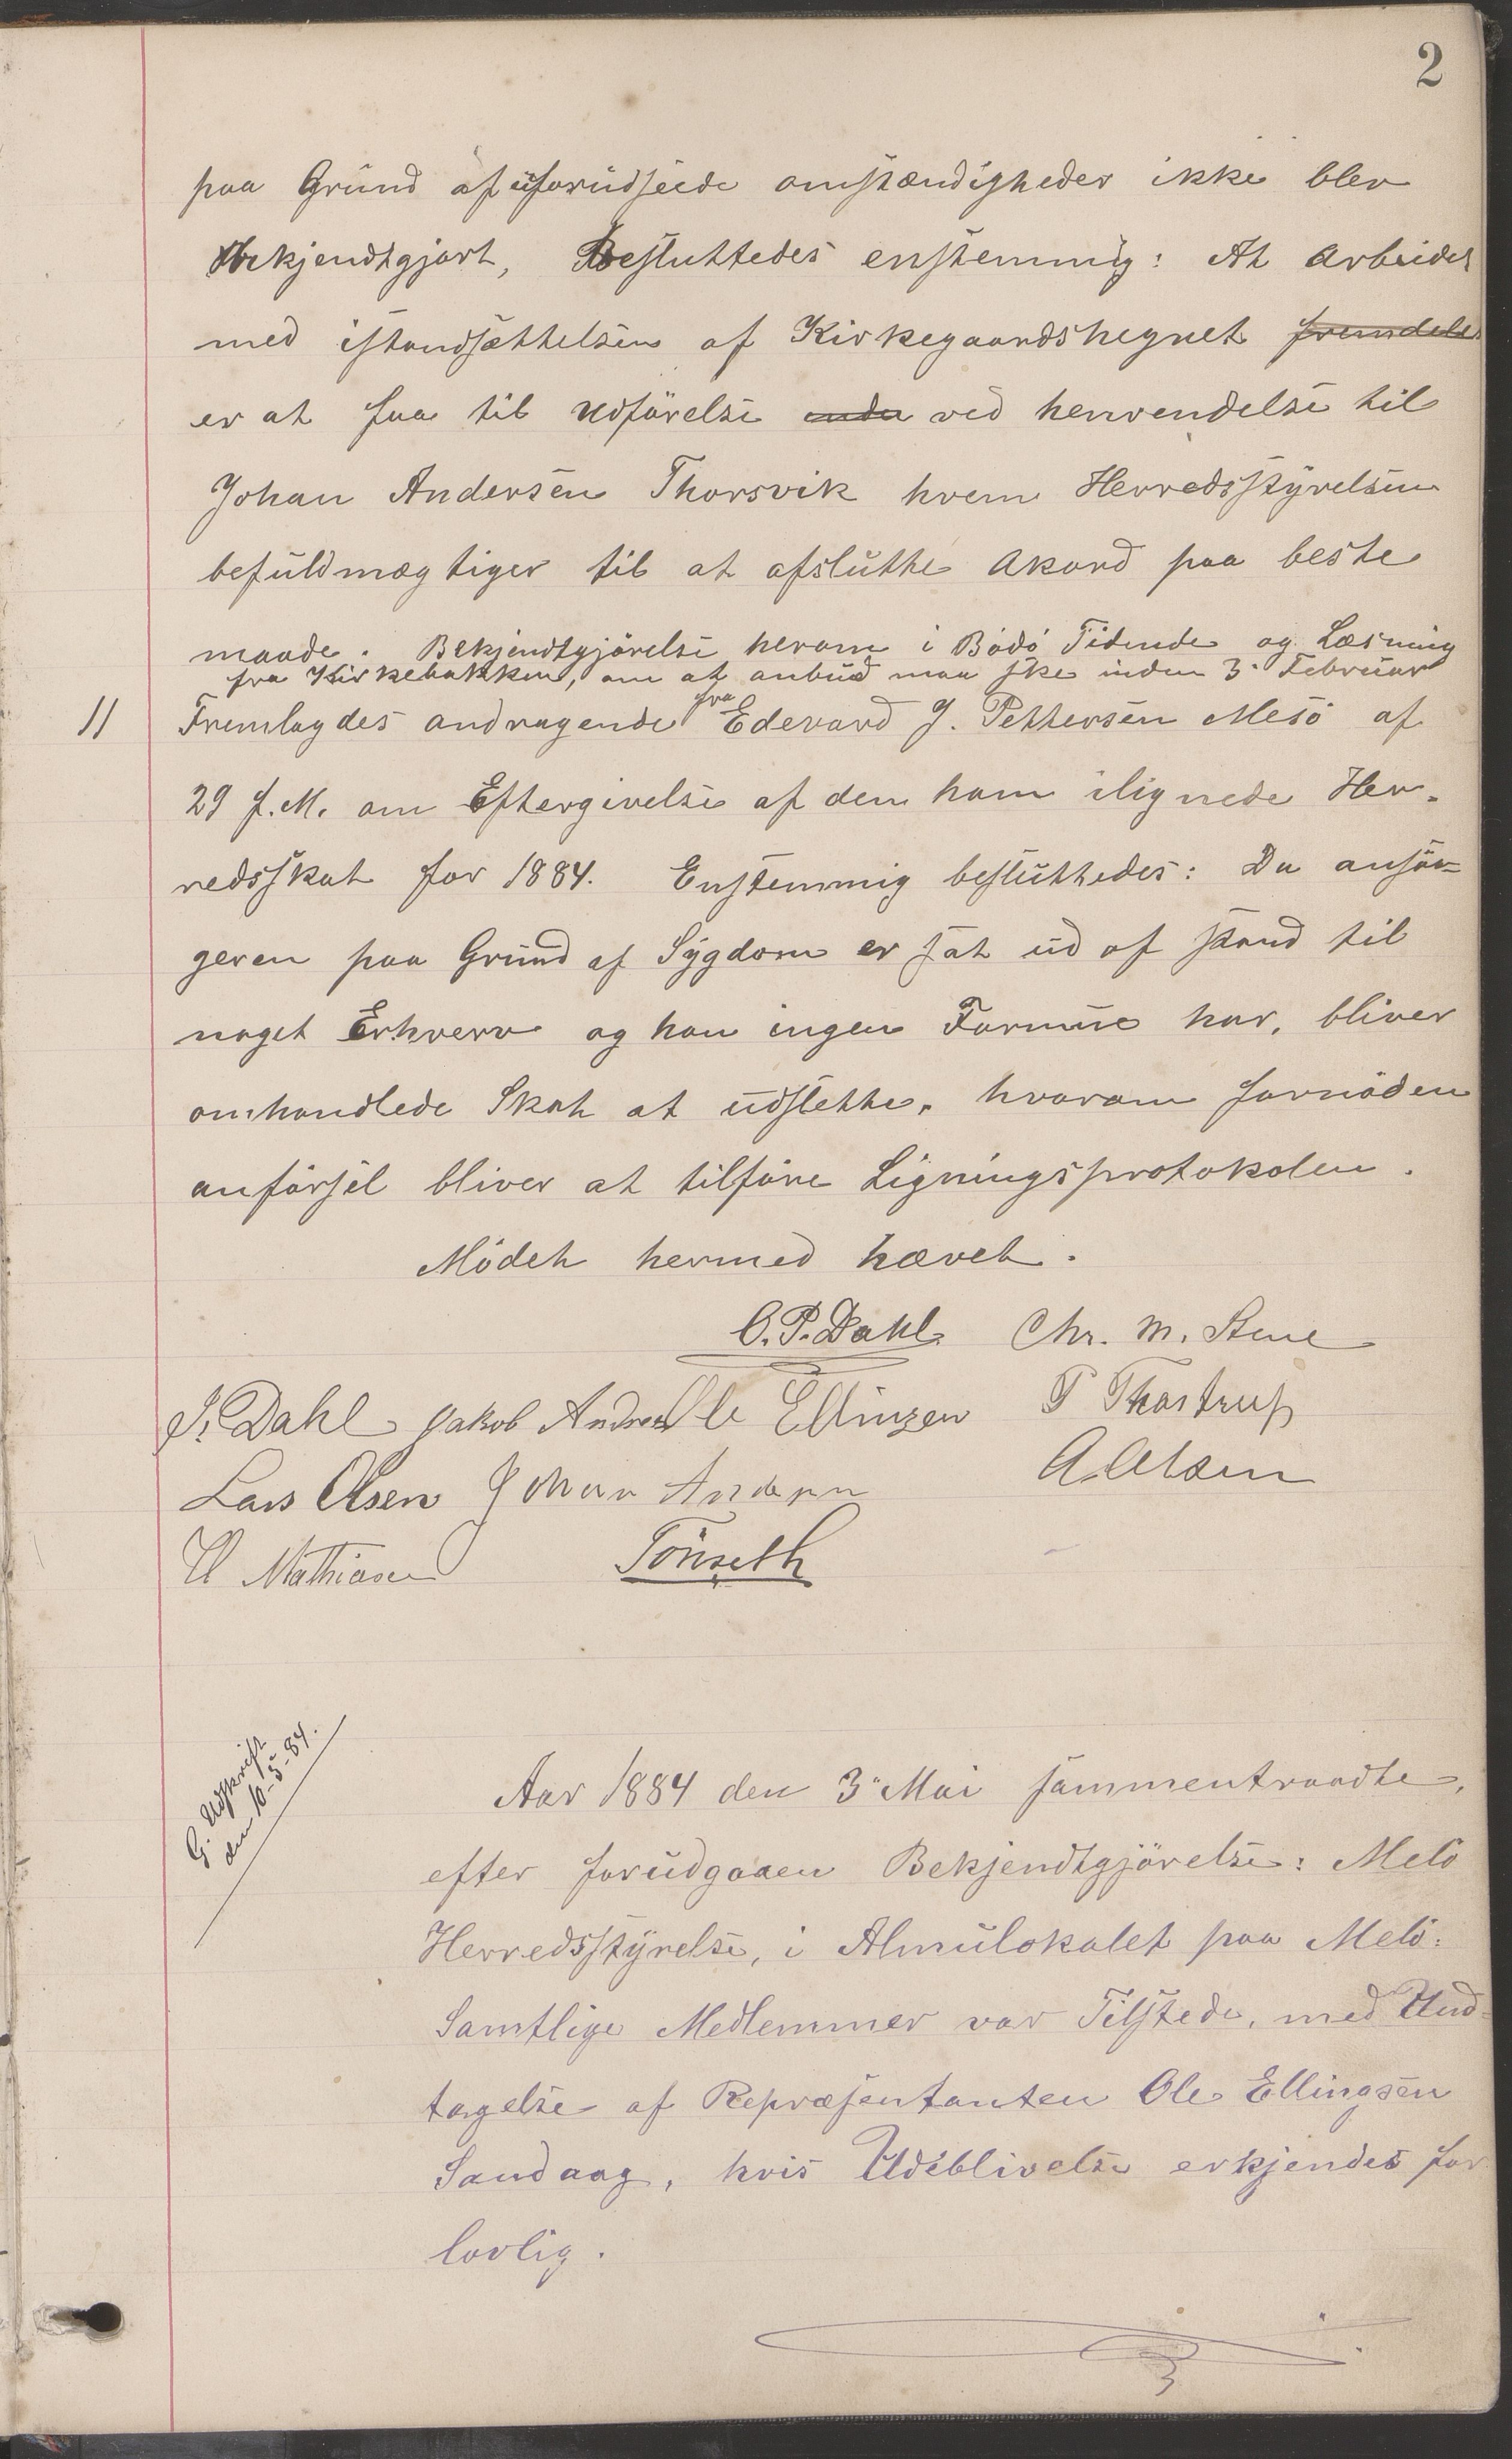 2
paa Grund af uforudseede omstændigheder ikke blev
bekjendtgjort, Besluttedes enstemmig: At Arbeidet
med istandsættelsen af Kirkegaardshegnet fremdeles
er at faa til Udförelse ved henvendelse til
Johan Andersen Thorsvik hvem Herredsstyrelsen
befuldmægtiger til at afslutte Akord paa beste
maade. Bekjendtgjörelse herom i Bodö Tidende og Læsning
fra Kirkebakken, om at anbud maa ske inden 3. Februar
11 Fremlagdes andragende fra Edevard J. Pettersen Mesö af
29 f.M. om Eftergivelse af den ham ilignede Her-
redsskat for 1884. Enstemmig besluttedes: Da ansö-
geren paa Grund af Sygdom er sat ud af stand til
noget Erhverv og han ingen Formue har, bliver
omhandlede Skat at udslette, hvorom fornöden
anförsel bliver at tilföre Ligningsprotokolen.
Mödet hermed hævet.
O.P. Dahl Chr. M. Stene
J. Dahl Jakob Andreas Ole Ellingsen P Thostrup
Lars Olsen Johan Andersen A. Olsen
Mathiasen Tönseth
G. Udskrift
den 10-5-84.
Aar 1884 den 3. Mai sammentraadte,
efter forudgaaen Bekjendtgjörelse: Melö
Herredsstyrelse, i Almulokalet paa Melö.
Samtlige Medlemmer var Tilstede, med Und-
tagelse af Repræsentanten Ole Ellingsen
Sandaag, hvis Udeblivelse erkjendes for
lovlig.